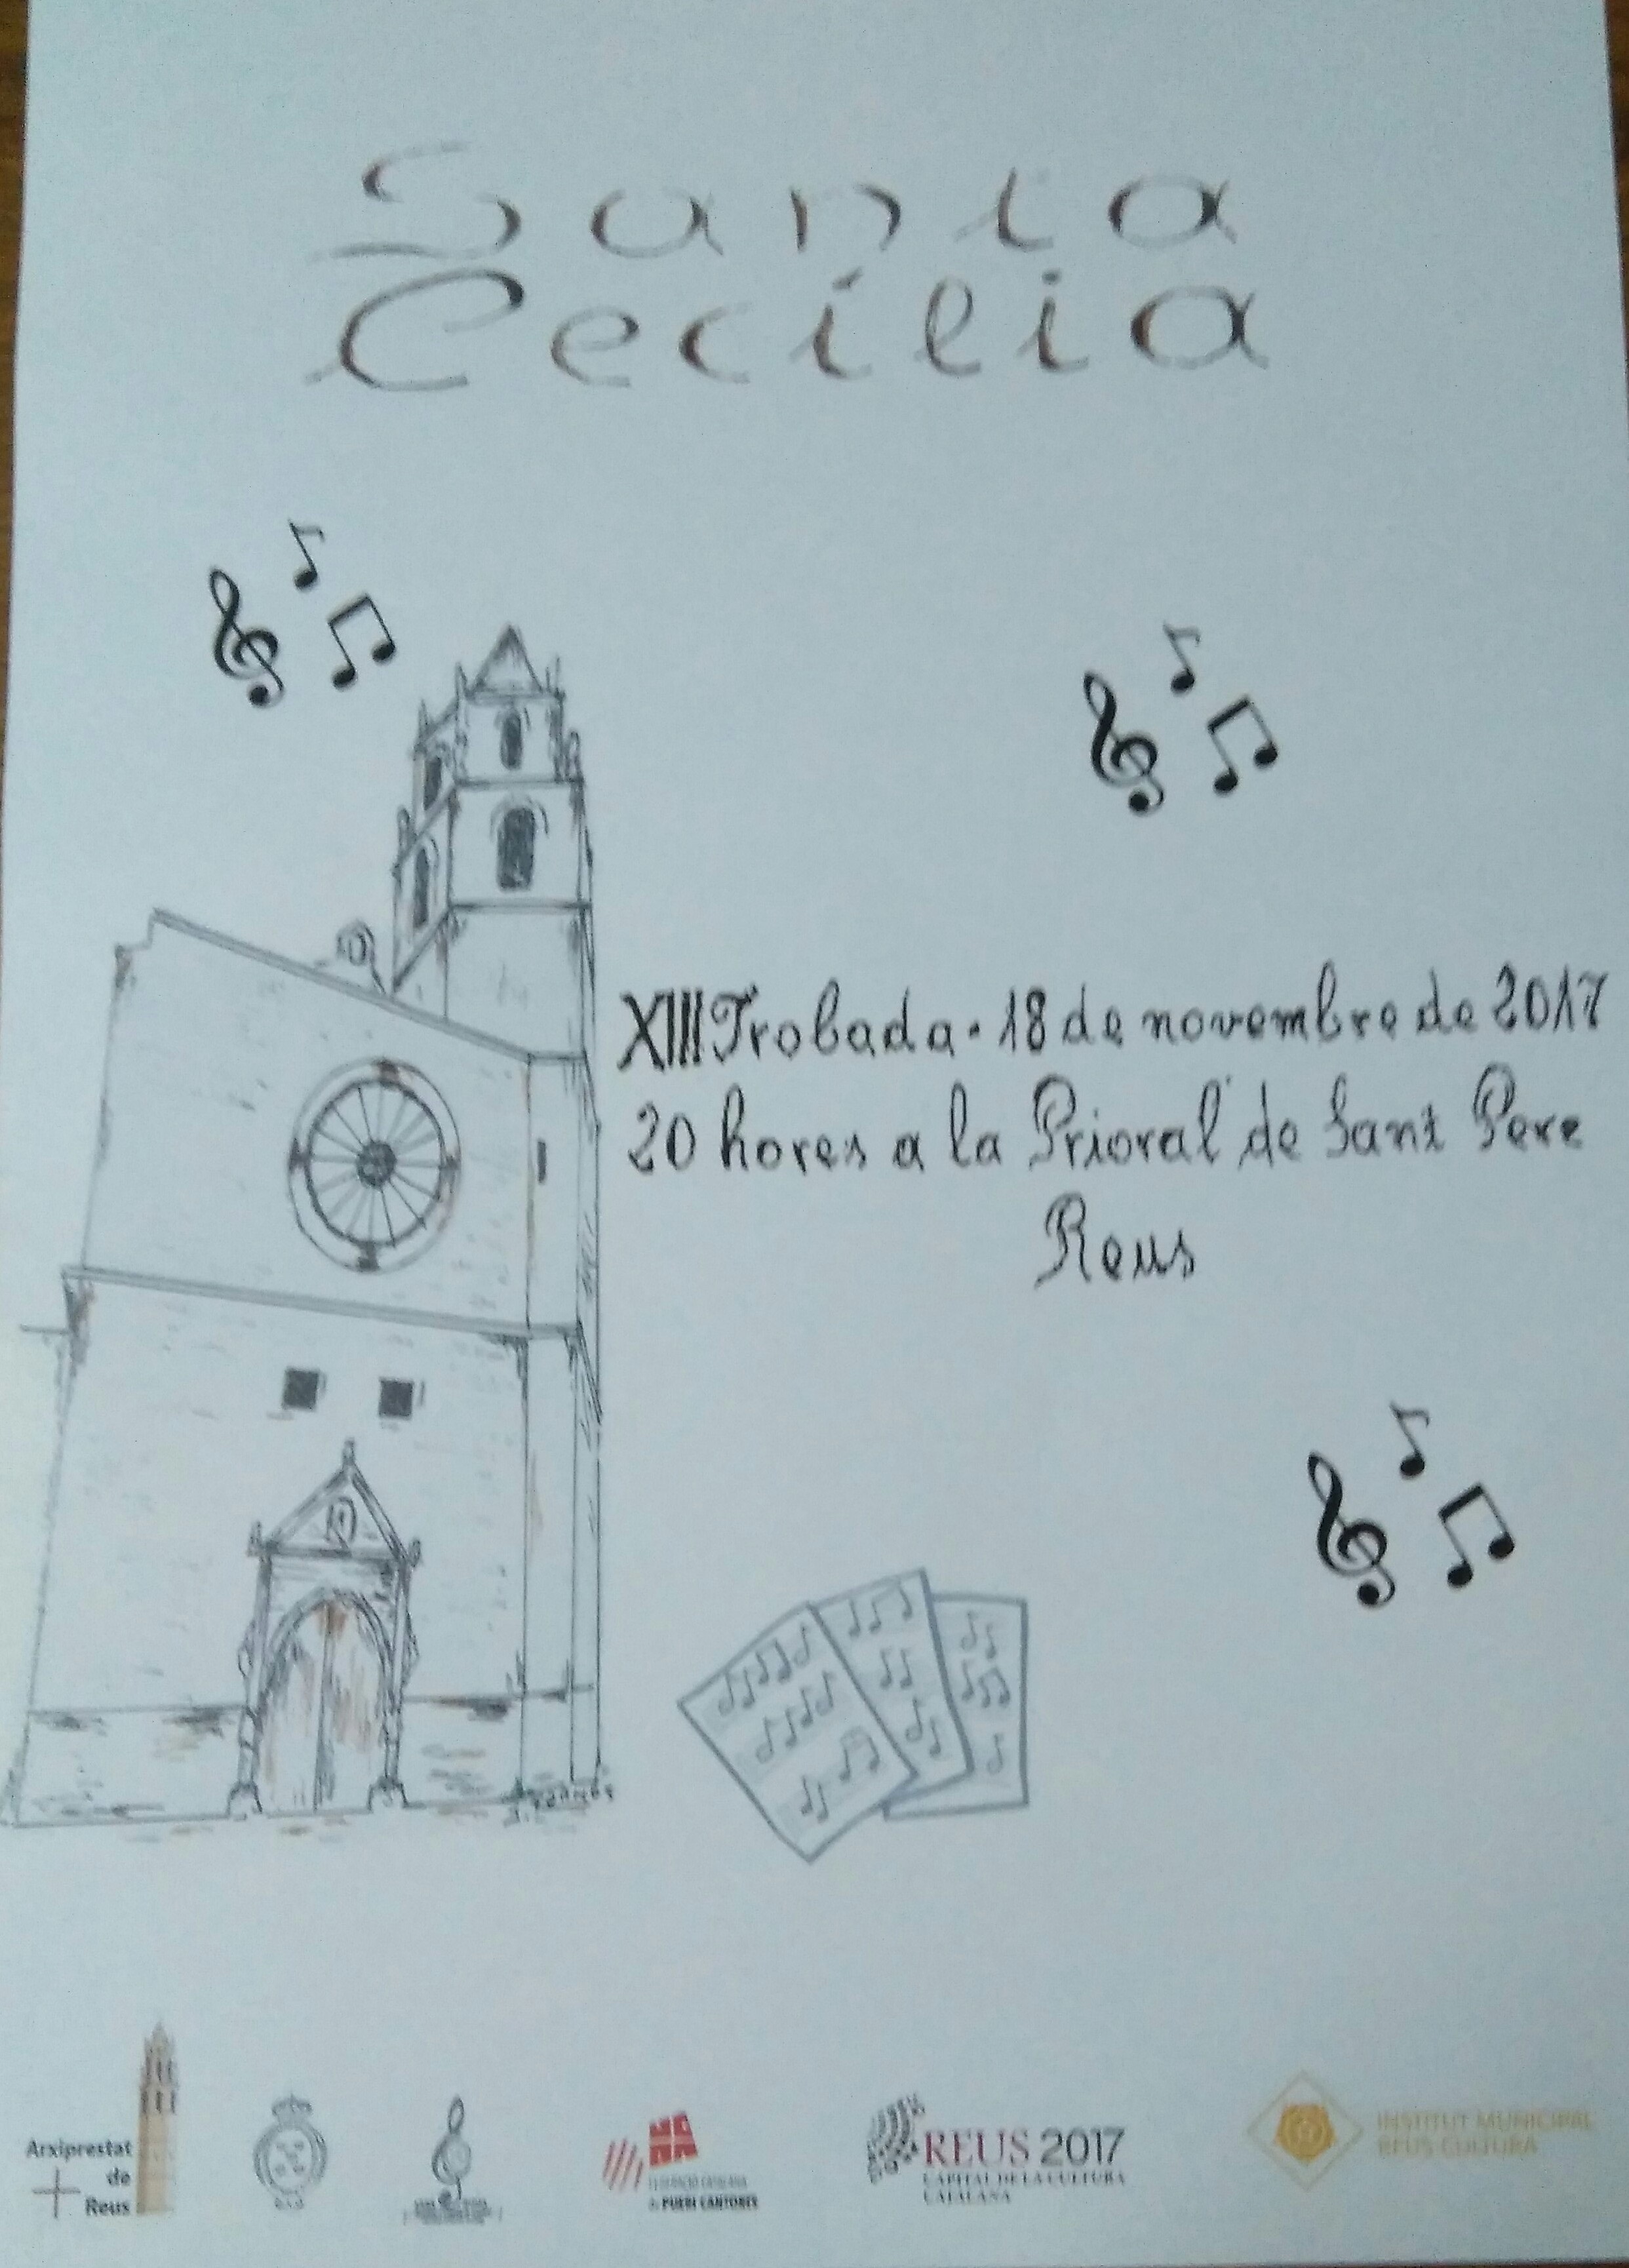 Santa
Cecília
XIII Trobada · 18 de novembre de 2017
20 hores a la Prioral de Sant Pere
Reus
Arxiprestat
de
Reus
FEDERACIÓ CATALANA
de PUERI CANTORES
REUS 2017
CAPITAL DE LA CULTURA
CATALANA
INSTITUT MUNICIPAL
REUS CULTURA